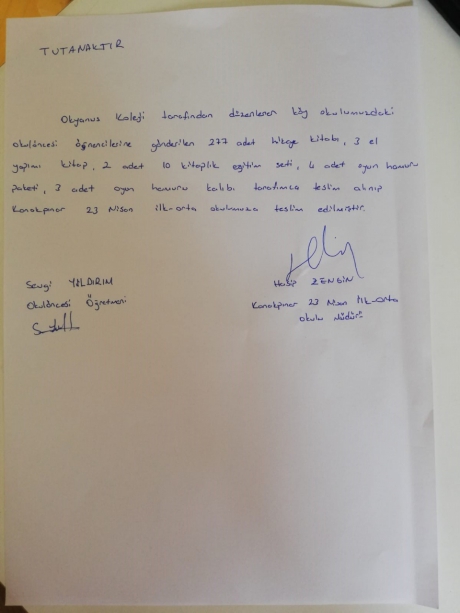 TUTANAKTIR
Okyanus Koleji tarafından düzenlenen köy okulumuzdaki
okulöncesi öğrencilerine gönderilen 277 adet hikaye kitabı, 3 el
yapımı kitap, 2 adet 10 kitaplık eğitim seti, 4 adet oyun hamuru
paketi, 3 adet oyun hamuru kalıbı tarafımca teslim alınıp
Konakpınar 23 Nisan ilk-orta okulumuza teslim edilmiştir.
Sevgi YILDIRIM
Okulöncesi Öğretmeni
Hasip ZENGİN
Konakpınar 23 Nisan ilk-orta
okulu Müdürü